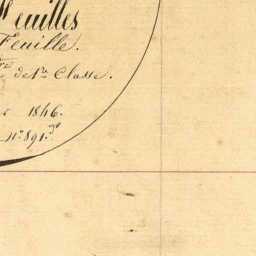 Feuilles
Feuille.
de 1re Classe.
1846.
N° 891.